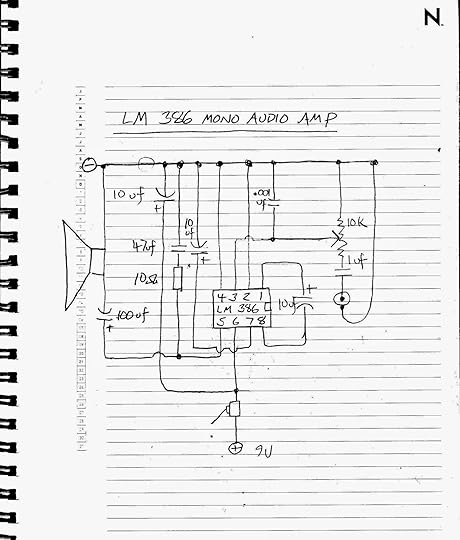 N
LM 386 MONO AUDIO AMP
10 uf
+
47uf
10
uf
+
.001
uf
10K
1uf
10Ω
100uf
+
4 3 2 1
LM 386
5 6 7 8
10uf
+
9V